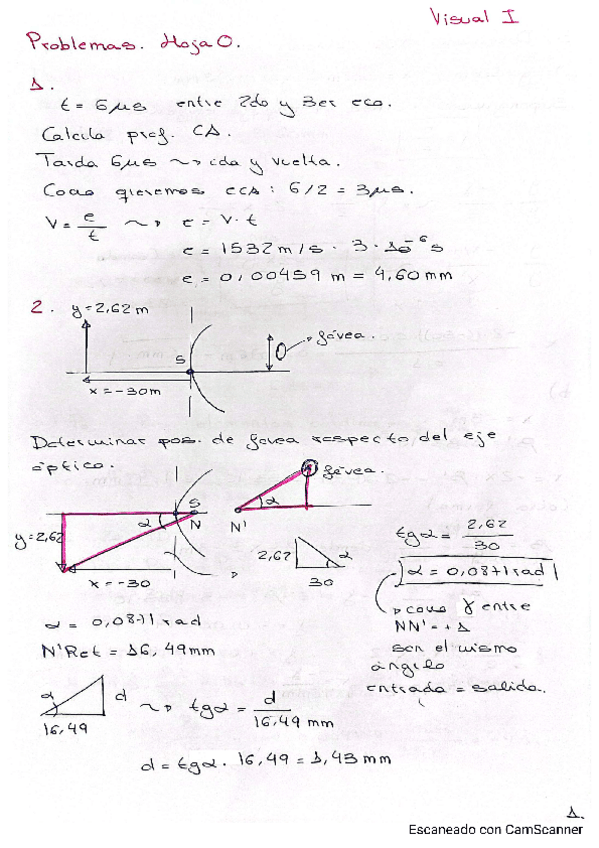 Visual I
Problemas. Hoja 0.
1.
t = 6 μs entre 2do y 3er eco.
Calcula prof. CA.
Tarda 6μs ~> ida y vuelta.
Como queremos eCA : 6/2 = 3μs.
V = e/t ~> e = V · t
e = 1532 m/s · 3 · 10⁻⁶ s
e = 0,00459 m = 4,60 mm
2. y = 2,62 m
S
fóvea.
x = -30m
Determinar pos. de fóvea respecto del eje
óptico.
S
fóvea.
α N N' α
y = 2,62
x = -30
2,62 α
30
tgα = 2,62/30
α = 0,0871 rad
como γ entre
NN' = +1
son el mismo
ángulo
entrada = salida.
α = 0,0871 rad
N'Ret = 16,49mm
α d
16,49
~> tgα = d/16,49 mm
d = tgα · 16,49 = 1,43 mm
1.
Escaneado con CamScanner